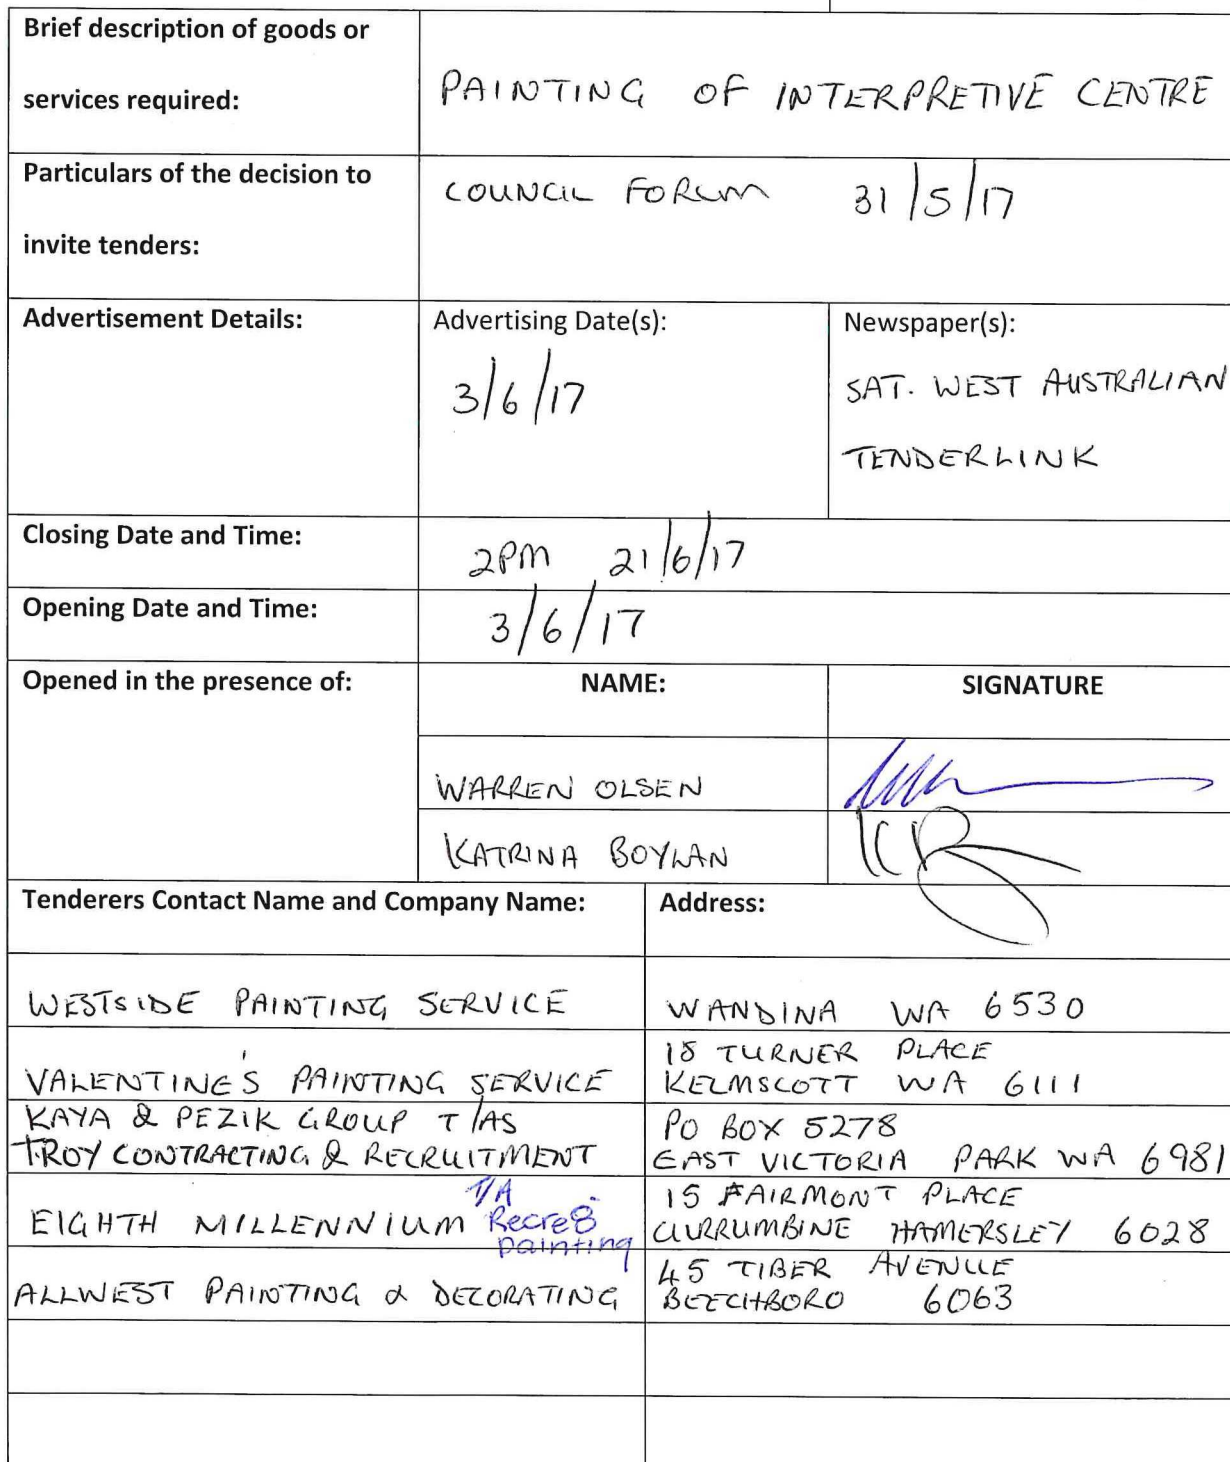 Brief description of goods or
services required:
PAINTING OF INTERPRETIVE CENTRE
Particulars of the decision to
invite tenders:
COUNCIL FORUM 31/5/17
Advertisement Details:
Advertising Date(s):
3/6/17
Newspaper(s):
SAT. WEST AUSTRALIAN
TENDERLINK
Closing Date and Time:
2PM 21/6/17
Opening Date and Time:
3/6/17
Opened in the presence of:
NAME:
SIGNATURE
WARREN OLSEN
KATRINA BOYLAN
KB
Tenderers Contact Name and Company Name:
Address:
WESTSIDE PAINTING SERVICE
WANDINA WA 6530
VALENTINE'S PAINTING SERVICE
18 TURNER PLACE
KELMSCOTT WA 6111
KAYA & PEZIK GROUP T/AS
TROY CONTRACTING & RECRUITMENT
PO BOX 5278
EAST VICTORIA PARK WA 6981
EIGHTH MILLENNIUM T/A
Recre8
painting
15 FAIRMONT PLACE
CURRUMBINE HAMERSLEY 6028
ALLWEST PAINTING & DECORATING
45 TIBER AVENUE
BEECHBORO 6063